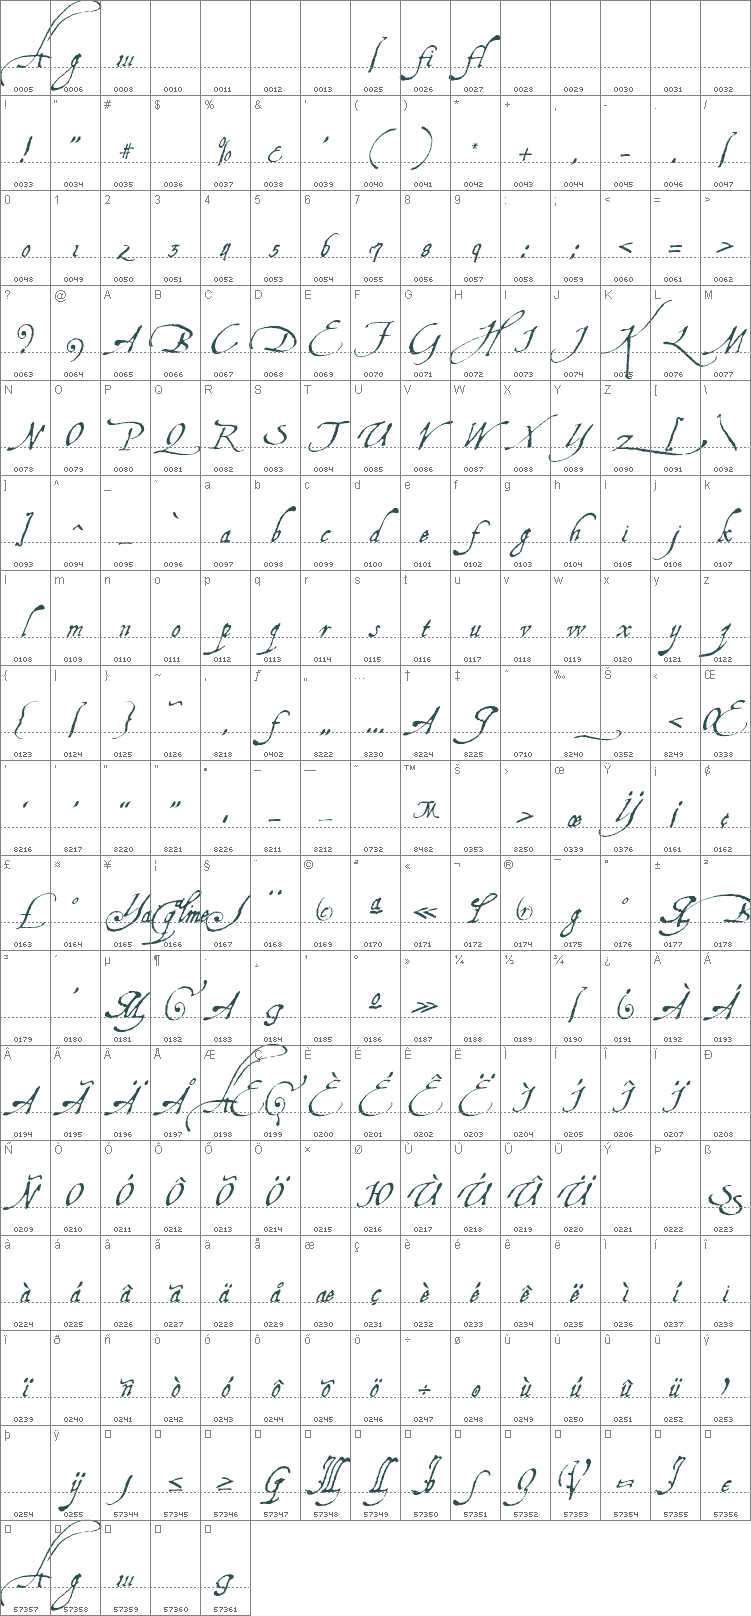 A g m [ fi fl
0005 0006 0008 0010 0011 0012 0013 0025 0026 0027 0028 0029 0030 0031 0032
! " # $ % & ' ( ) * + , - . /
0033 0034 0035 0036 0037 0038 0039 0040 0041 0042 0043 0044 0045 0046 0047
0 1 2 3 4 5 6 7 8 9 : ; < = >
0048 0049 0050 0051 0052 0053 0054 0055 0056 0057 0058 0059 0060 0061 0062
? @ A B C D E F G H I J K L M
0063 0064 0065 0066 0067 0068 0069 0070 0071 0072 0073 0074 0075 0076 0077
N O P Q R S T U V W X Y Z [ \
0078 0079 0080 0081 0082 0083 0084 0085 0086 0087 0088 0089 0090 0091 0092
] ^ _ ` a b c d e f g h i j k
0093 0094 0095 0096 0097 0098 0099 0100 0101 0102 0103 0104 0105 0106 0107
l m n o p q r s t u v w x y z
0108 0109 0110 0111 0112 0113 0114 0115 0116 0117 0118 0119 0120 0121 0122
{ | } ~ ‚ ƒ „ … † ‡ ˆ ‰ Š ‹ Œ
0123 0124 0125 0126 8218 0402 8222 8230 8224 8225 0710 8240 0352 8249 0338
‘ ’ “ ” • – — ˜ ™ š › œ Ÿ ¡ ¢
8216 8217 8220 8221 8226 8211 8212 0732 8482 0353 8250 0339 0376 0161 0162
£ ¤ ¥ ¦ § ¨ © ª « ¬ ® ¯ ° ± ²
0163 0164 0165 0166 0167 0168 0169 0170 0171 0172 0174 0175 0176 0177 0178
³ ´ µ ¶ · ¸ ¹ º » ¼ ½ ¾ ¿ À Á
0179 0180 0181 0182 0183 0184 0185 0186 0187 0188 0189 0190 0191 0192 0193
Â Ã Ä Å Æ Ç È É Ê Ë Ì Í Î Ï Ð
0194 0195 0196 0197 0198 0199 0200 0201 0202 0203 0204 0205 0206 0207 0208
Ñ Ò Ó Ô Õ Ö × Ø Ù Ú Û Ü Ý Þ ß
0209 0210 0211 0212 0213 0214 0215 0216 0217 0218 0219 0220 0221 0222 0223
à á â ã ä å æ ç è é ê ë ì í î
0224 0225 0226 0227 0228 0229 0230 0231 0232 0233 0234 0235 0236 0237 0238
ï ð ñ ò ó ô õ ö ÷ ø ù ú û ü ý
0239 0240 0241 0242 0243 0244 0245 0246 0247 0248 0249 0250 0251 0252 0253
þ ÿ
0254 0255 57344 57345 57346 57347 57348 57349 57350 57351 57352 57353 57354 57355 57356
A g m g
57357 57358 57359 57360 57361